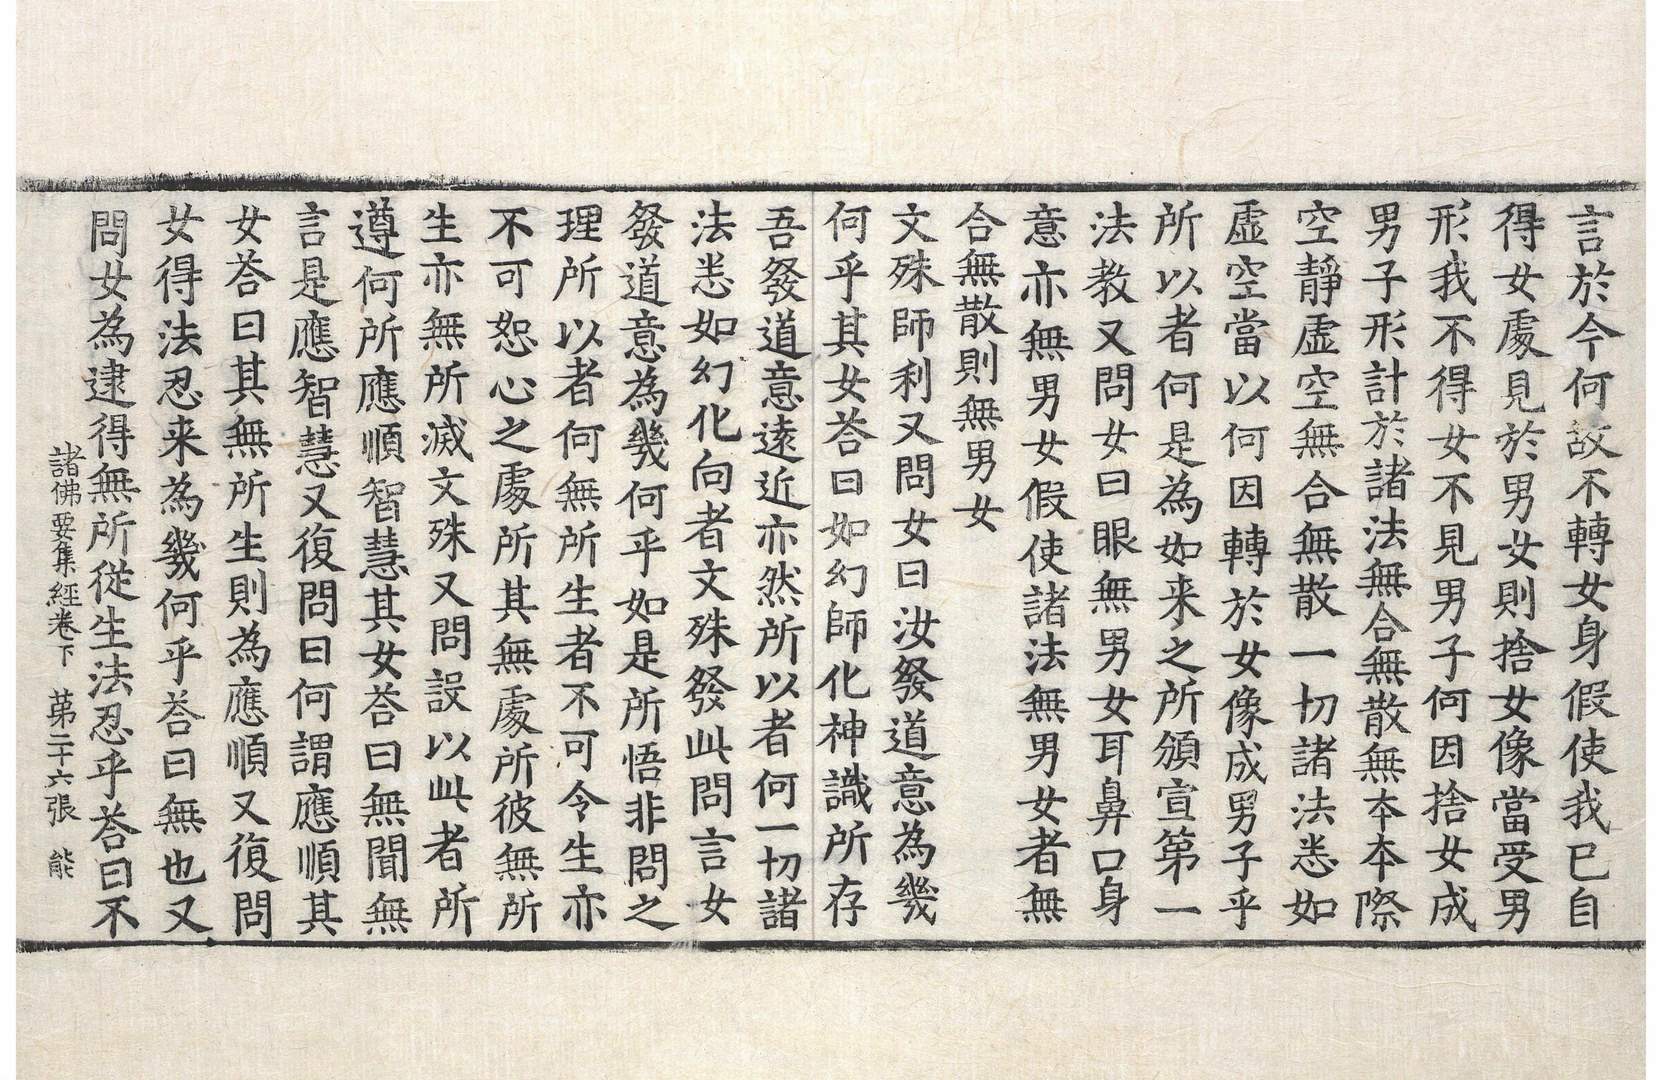 言於今何故不轉女身假使我已自
得女處見於男女則捨女像當受男
形我不得女不見男子何因捨女成
男子形計於諸法無合無散無本本際
空靜虛空無合無散一切諸法悉如
虛空當以何因轉於女像成男子乎
所以者何是為如来之所頒宣第一
法教又問女曰眼無男女耳鼻口身
意亦無男女假使諸法無男女者無
合無散則無男女
文殊師利又問女曰汝發道意為幾
何乎其女荅曰如幻師化神識所存
吾發道意遠近亦然所以者何一切諸
法悉如幻化向者文殊發此問言女
發道意為幾何乎如是所悟非問之
理所以者何無所生者不可令生亦
不可恕心之處所其無處所彼無所
生亦無所滅文殊又問設以此者所
遵何所應順智慧其女荅曰無聞無
言是應智慧又復問曰何謂應順其
女荅曰其無所生則為應順又復問
女得法忍来為幾何乎荅曰無也又
問女為逮得無所從生法忍乎荅曰不
諸佛要集經卷下 苐二十六張 能